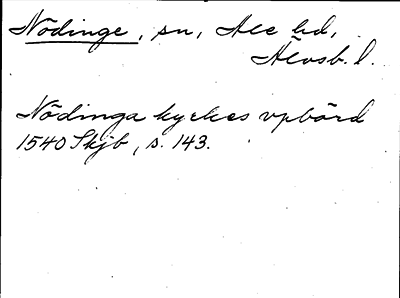 Nödinge, sn, Ale hd,
Älvsb. l.
Nödinga kyrkes vpbörd
1540 Skjb, s. 143.